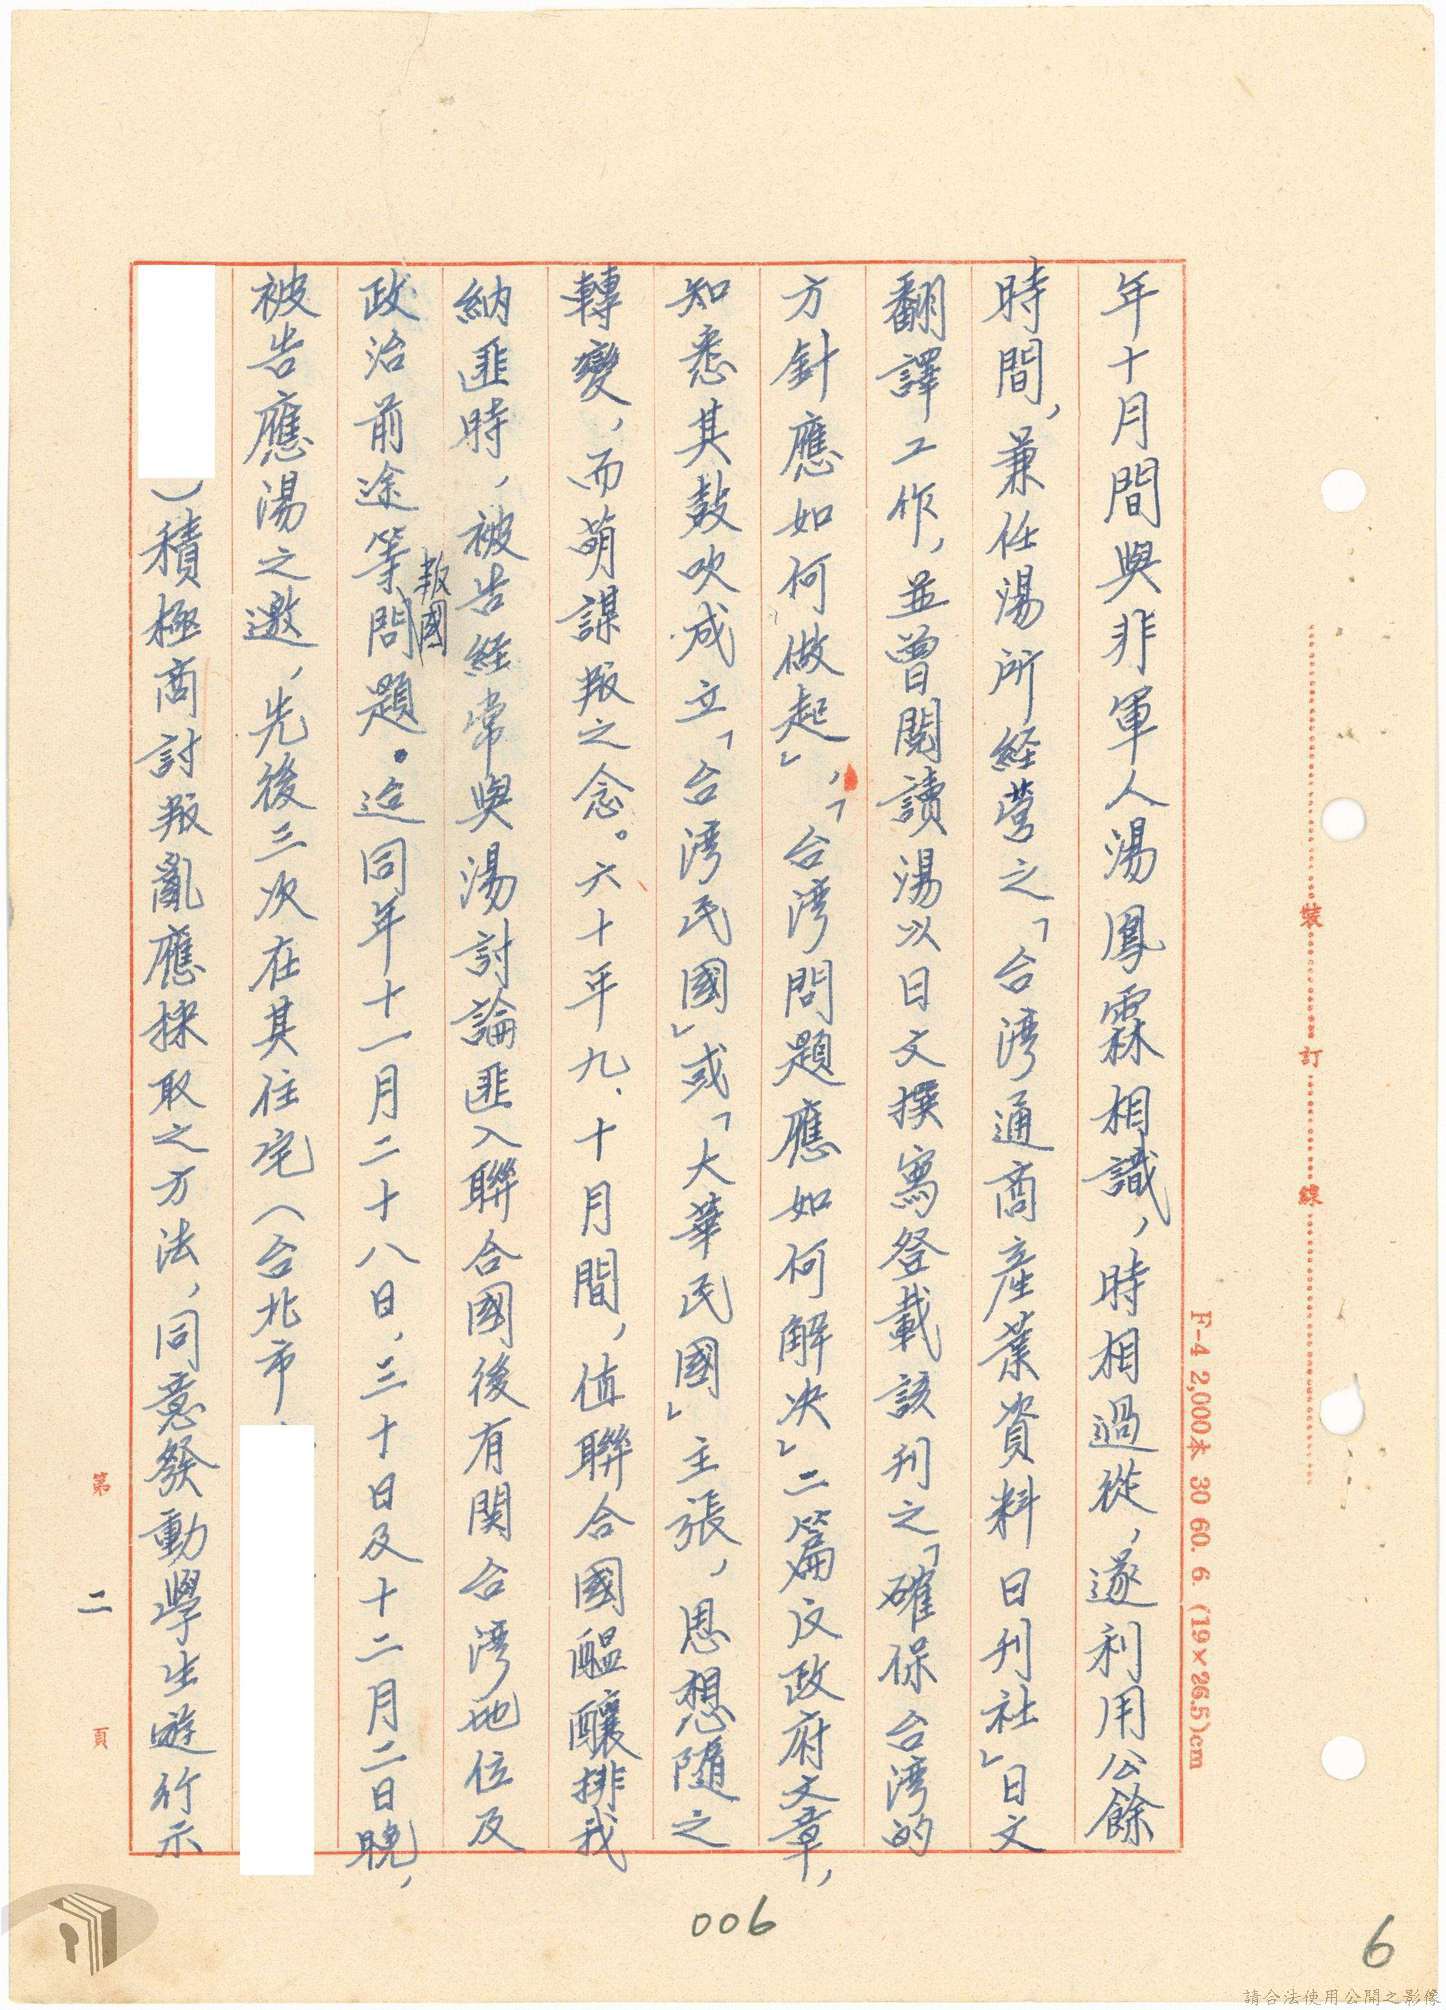 年十月間與非軍人湯鳳霖相識，時相過從，遂利用公餘
時間，兼任湯所経营之「台湾通商產業資料日刊社」日文
翻譯工作，並曾閱讀湯以日文撰寫登載該刊之「確保台湾的
方針應如何做起」，「台湾問題應如何解决」二篇反政府文章，
知悉其鼓吹成立「台湾民國」或「大華民國」主張，思想隨之
轉變，而萌謀叛之念。六十年九、十月間，值聯合國醞釀排我
納匪時，被告経常與湯討論匪入聯合國後有関台湾地位及
叛國
政治前途等問題。迨同年十一月二十八日，三十日及十二月二日晚，
被告應湯之邀，先後三次在其住宅（台北市
）積極商討叛亂應採取之方法，同意發動學生遊行示
第 二 頁
裝 訂 線
F-4 2,000本 30 60. 6. (19×26.5)cm
006
6
請合法使用公開之影像